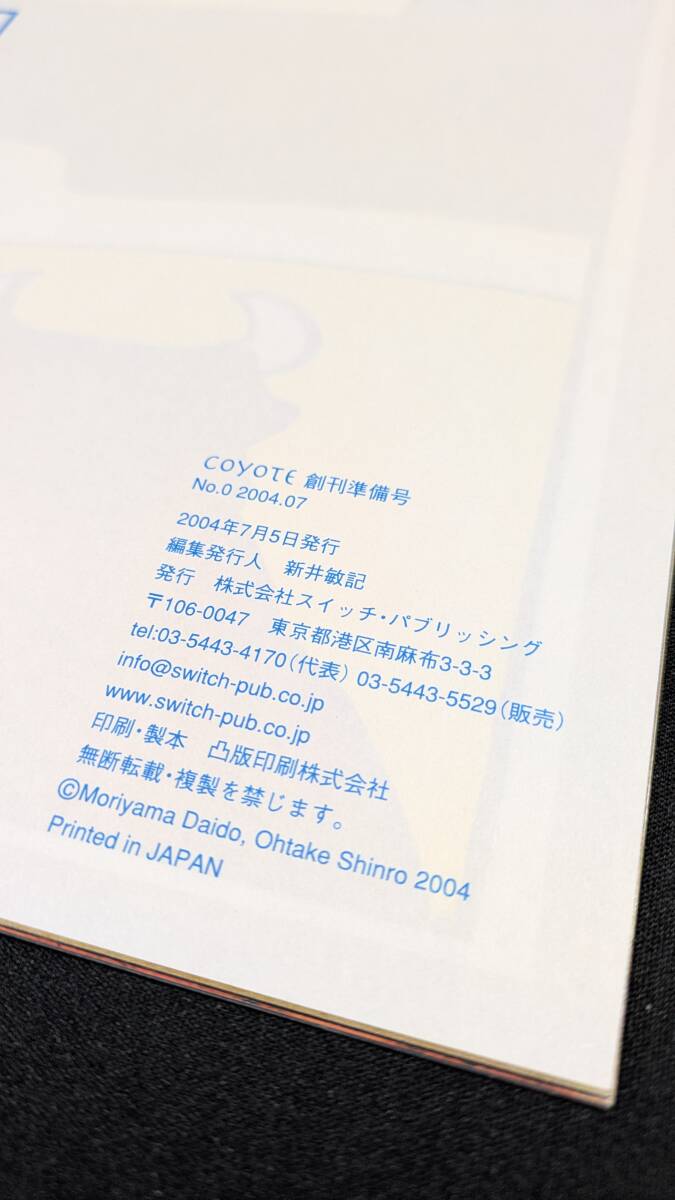 COYOTE 創刊準備号
No.0 2004.07
2004年7月5日発行
編集発行人　新井敏記
発行　株式会社スイッチ・パブリッシング
〒106-0047　東京都港区南麻布3-3-3
tel:03-5443-4170（代表） 03-5443-5529（販売）
info@switch-pub.co.jp
www.switch-pub.co.jp
印刷・製本　凸版印刷株式会社
無断転載・複製を禁じます。
©Moriyama Daido, Ohtake Shinro 2004
Printed in JAPAN